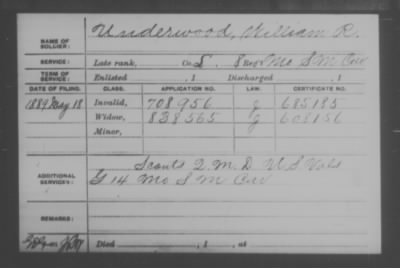 NAME OF SOLDIER: Underwood, William R.
SERVICE: Late rank, Co. 8 Reg't Mo S M Cav
TERM OF SERVICE: Enlisted , 1 Discharged , 1
DATE OF FILING. CLASS. APPLICATION NO. LAW. CERTIFICATE NO.
1889 May 18 Invalid, 708956 g 685185
Widow, 838565 g 608156
Minor,
Scouts Q. M. D. U S Vols
ADDITIONAL SERVICES: G 14 Mo S M Cav
REMARKS:
Died , 1 , at